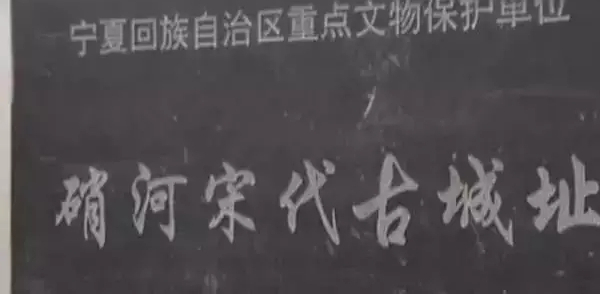 宁夏回族自治区重点文物保护单位
硝河宋代古城址